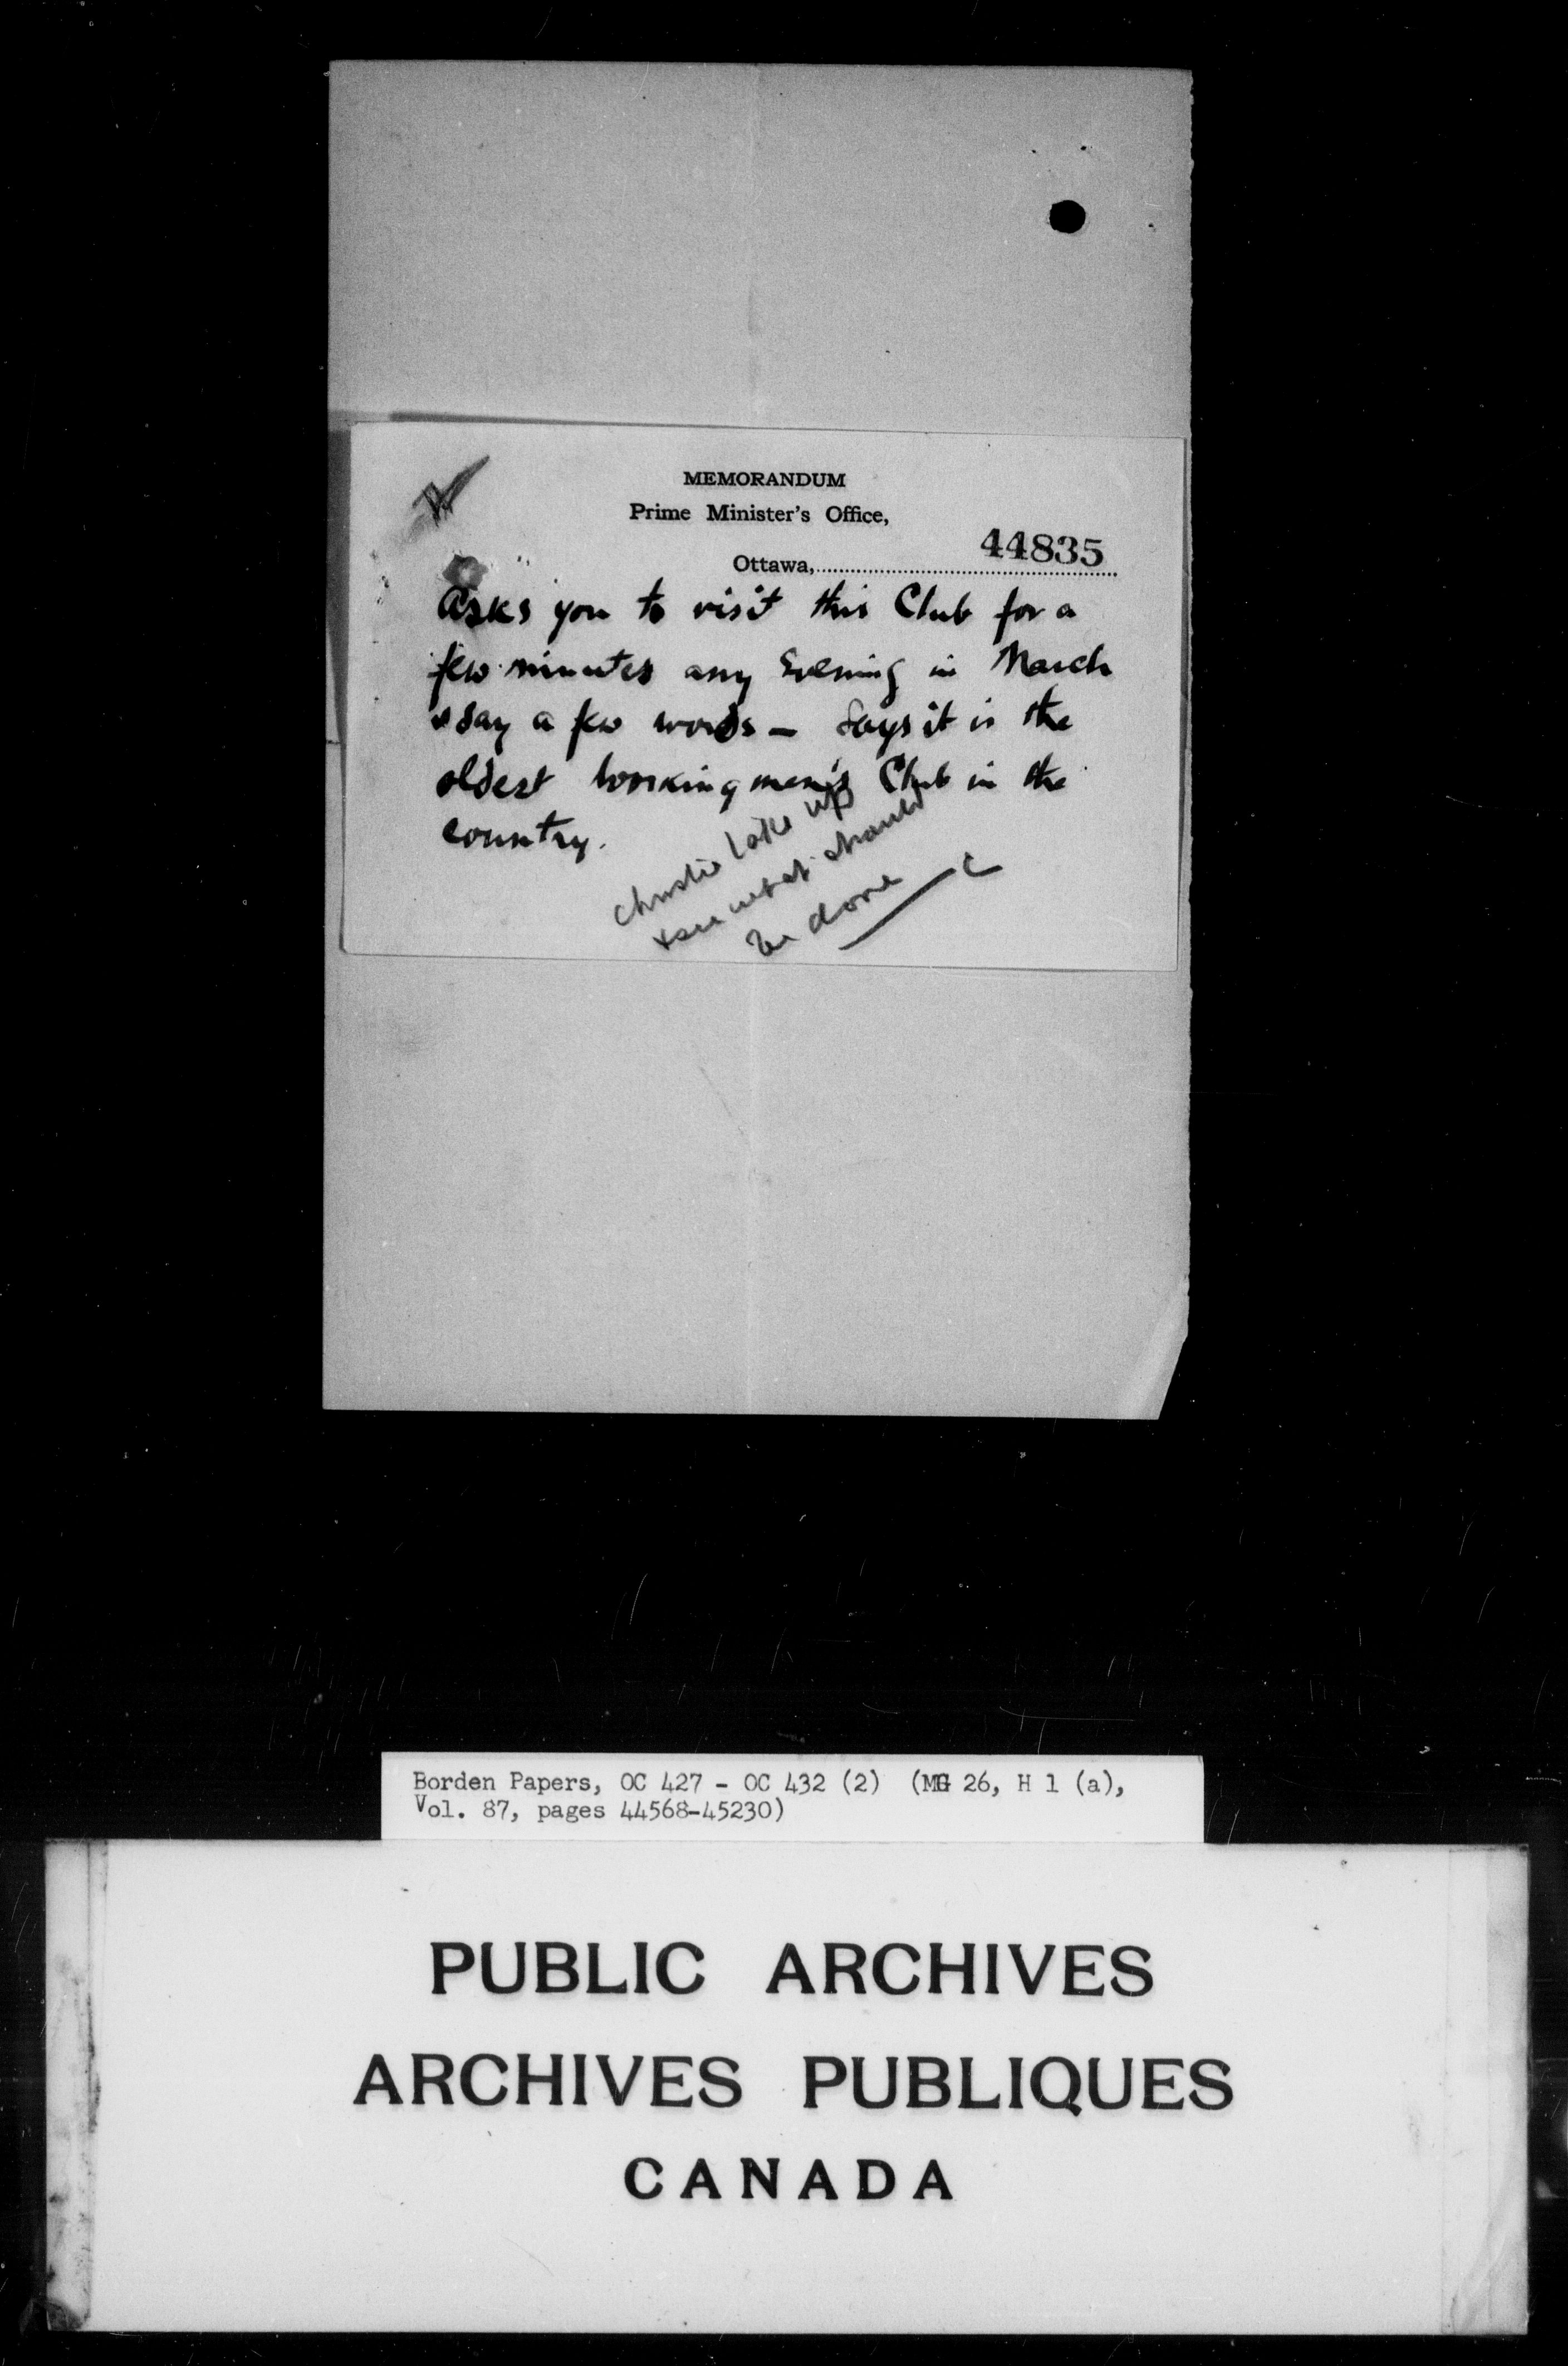 MEMORANDUM
Prime Minister's Office,
44835
Ottawa,
Asks you to visit this Club for a
few minutes any Evening in March
& say a few words — Says it is the
oldest workingmen's Club in the
country.
Christie take up
& see what should
be done
C
Borden Papers, OC 427 - OC 432 (2) (MG 26, H 1 (a),
Vol. 87, pages 44568-45230)
PUBLIC ARCHIVES
ARCHIVES PUBLIQUES
CANADA